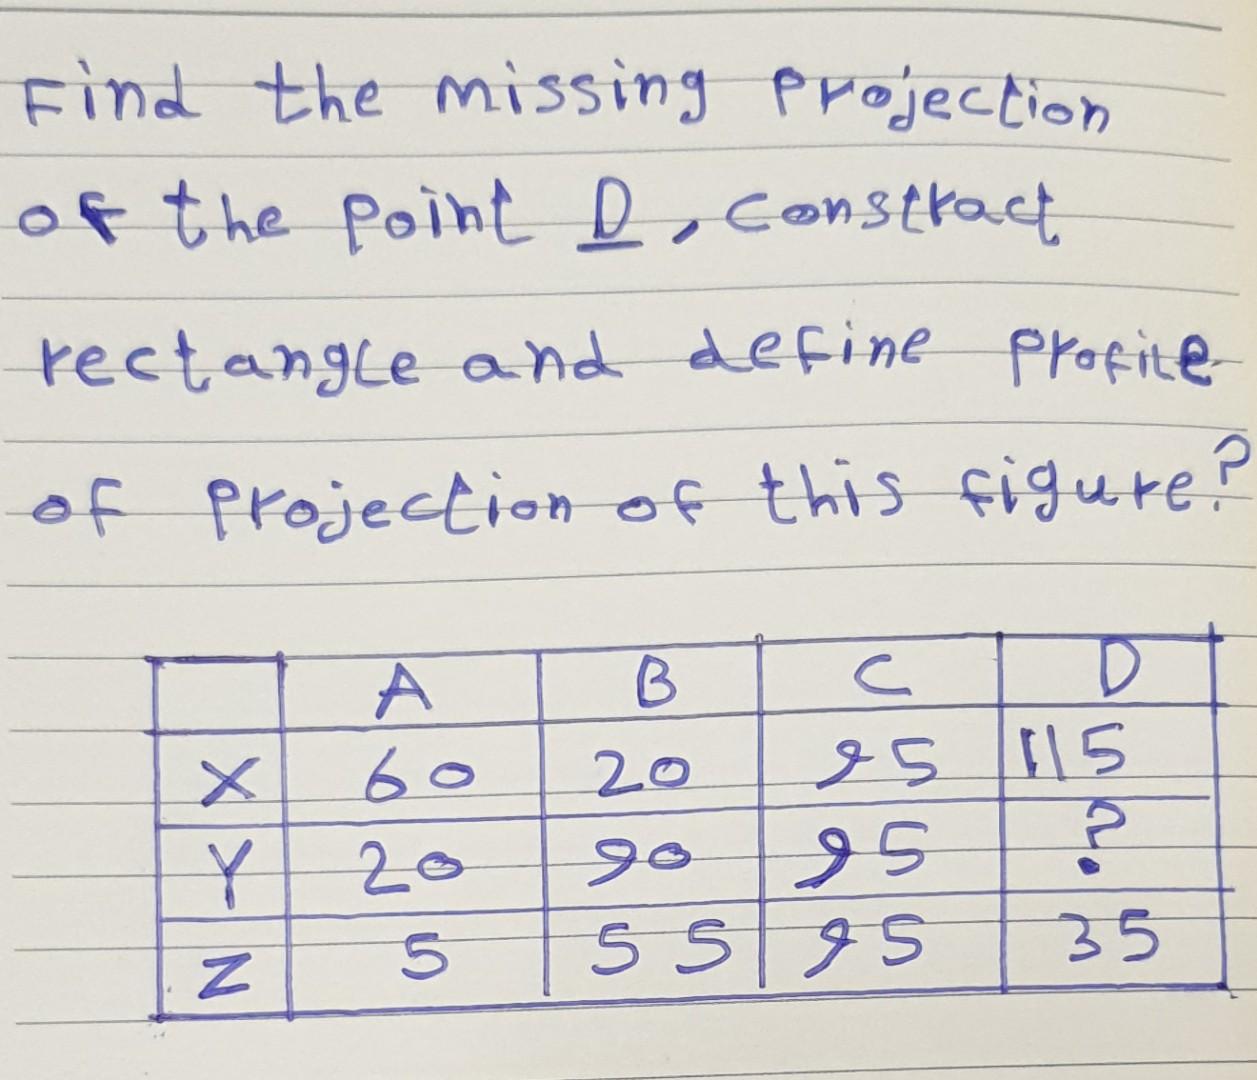 Find the missing projection
of the point D, constract
rectangle and define profile
of projection of this figure?
A B C D
X 60 20 95 115
Y 20 90 95 ?
Z 5 55 95 35